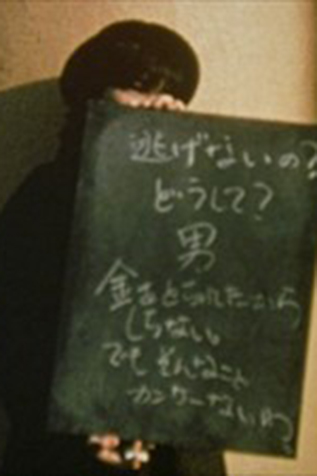 逃げないの?
どうして?
男
金をとられたから
しらない。
でもそんなこと
カンケーないわ